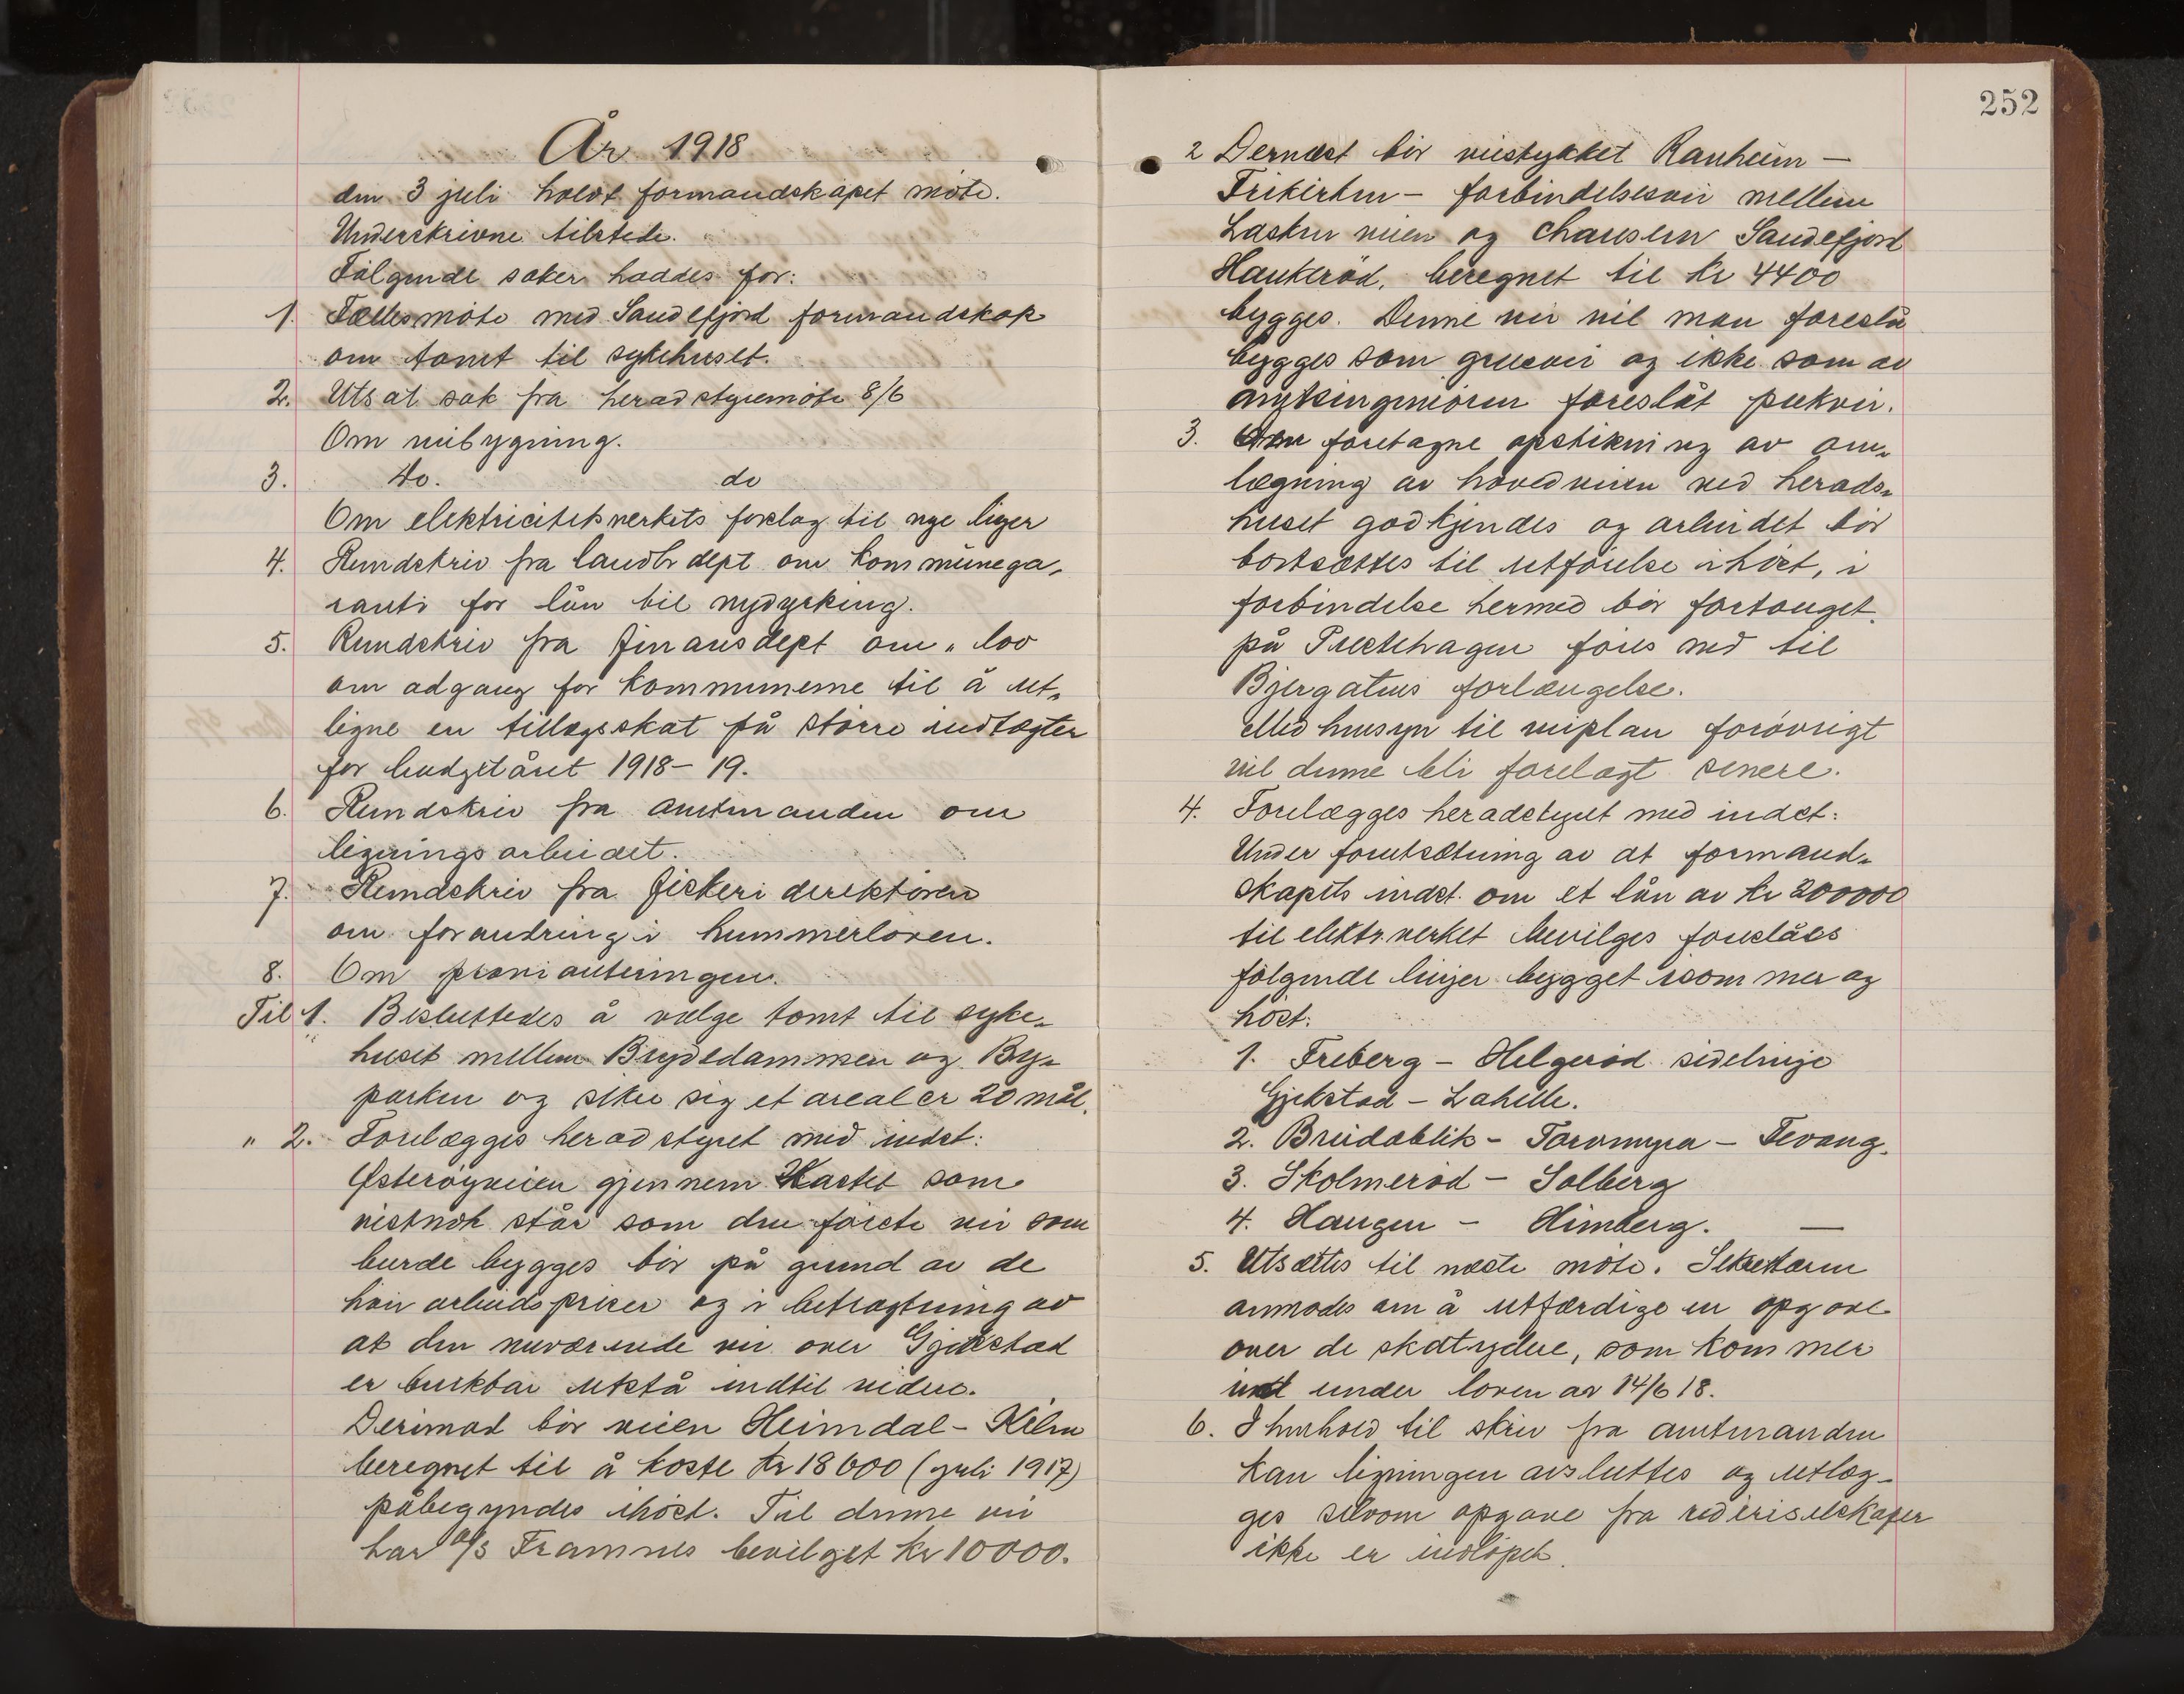 År 1918
den 3 juli holdt formandskapet møte.
Underskrivne tilstede.
Følgende saker haddes for:
1. Fællesmøte med Sandefjord formandskap
om tomt til sykehuset.
2. Utsat sak fra heradstyremøte 8/6
Om veibygning.
3. do. do
Om elektricitetsverkets forslag til nye linjer
4. Rundskriv fra landbr dept om kommunega-
ranti for lån til nydyrking.
5. Rundskriv fra Finansdept om " lov
om adgang for kommunerne til å ut-
ligne en tillægsskat på større indtægter
for budgetåret 1918-19.
6. Rundskriv fra amtmanden om
ligningsarbeidet.
7. Rundskriv fra Fiskeri direktøren
om forandring i hummerloven.
8. Om provianteringen.
Til 1. Besluttedes å vælge tomt til syke-
huset mellem Brydedammen og By-
parken og sikre sig et areal er 20 mål.
" 2. Forelægges heradstyret med indst:
Østerøyveien gjennem Hastet som
vistnok står som den første vei som
burde bygges bør på grund av de
høie arbeidspriser og i betragtning av
at den nuværende vei over Gjekstad
er brukbar utstå indtil videre.
Derimod bør veien Heimdal - Kilen
beregnet til å koste kr 18600 (juli 1917)
påbegyndes ihøst. Til denne vei
har A/S Framnes bevilget kr 10000.
252
2 Dernæst bør veistykket Ranheim -
Frikirken - forbindelsesvei mellem
Lasken veien og Chauseen Sandefjord
Haukerød, beregnet til kr 4400
bygges. Denne vei vil man foreslå
bygges som grusvei og ikke som av
amtsingeniøren foreslåt pukvei.
3. Den foretagne opstikning av om-
lægning av hovedveien ved herads-
huset godkjendes og arbeidet bør
bortsættes til utførelse ihøst, i
forbindelse hermed bør fortauget
på Prestehagen føres ned til
Bjergatens forlængelse.
Med hensyn til veiplan forøvrigt
vil denne bli forelagt senere.
4. Forelægges heradstyret med indst:
Under forutsætning av at formand-
skapets indst. om et lån av kr 200000
til elektr.verket bevilges foreslåes
følgende linjer bygget isommer og
høst:
1. Freberg - Helgerød sidelinje
Gjekstad - Lahelle.
2. Breidablik - Toromyra - Fevang.
3. Skolmerød - Solberg
4. Haugen - Himberg. —
5. Utsættes til næste møte. Sekretæren
anmodes om å utfærdige en opgave
over de skatydere, som kommer
ind under loven av 14/6 18.
6. I henhold til skriv fra amtmanden
kan ligningen avsluttes og utlæg-
ges selvom opgave fra rederiselskaper
ikke er indløpet.